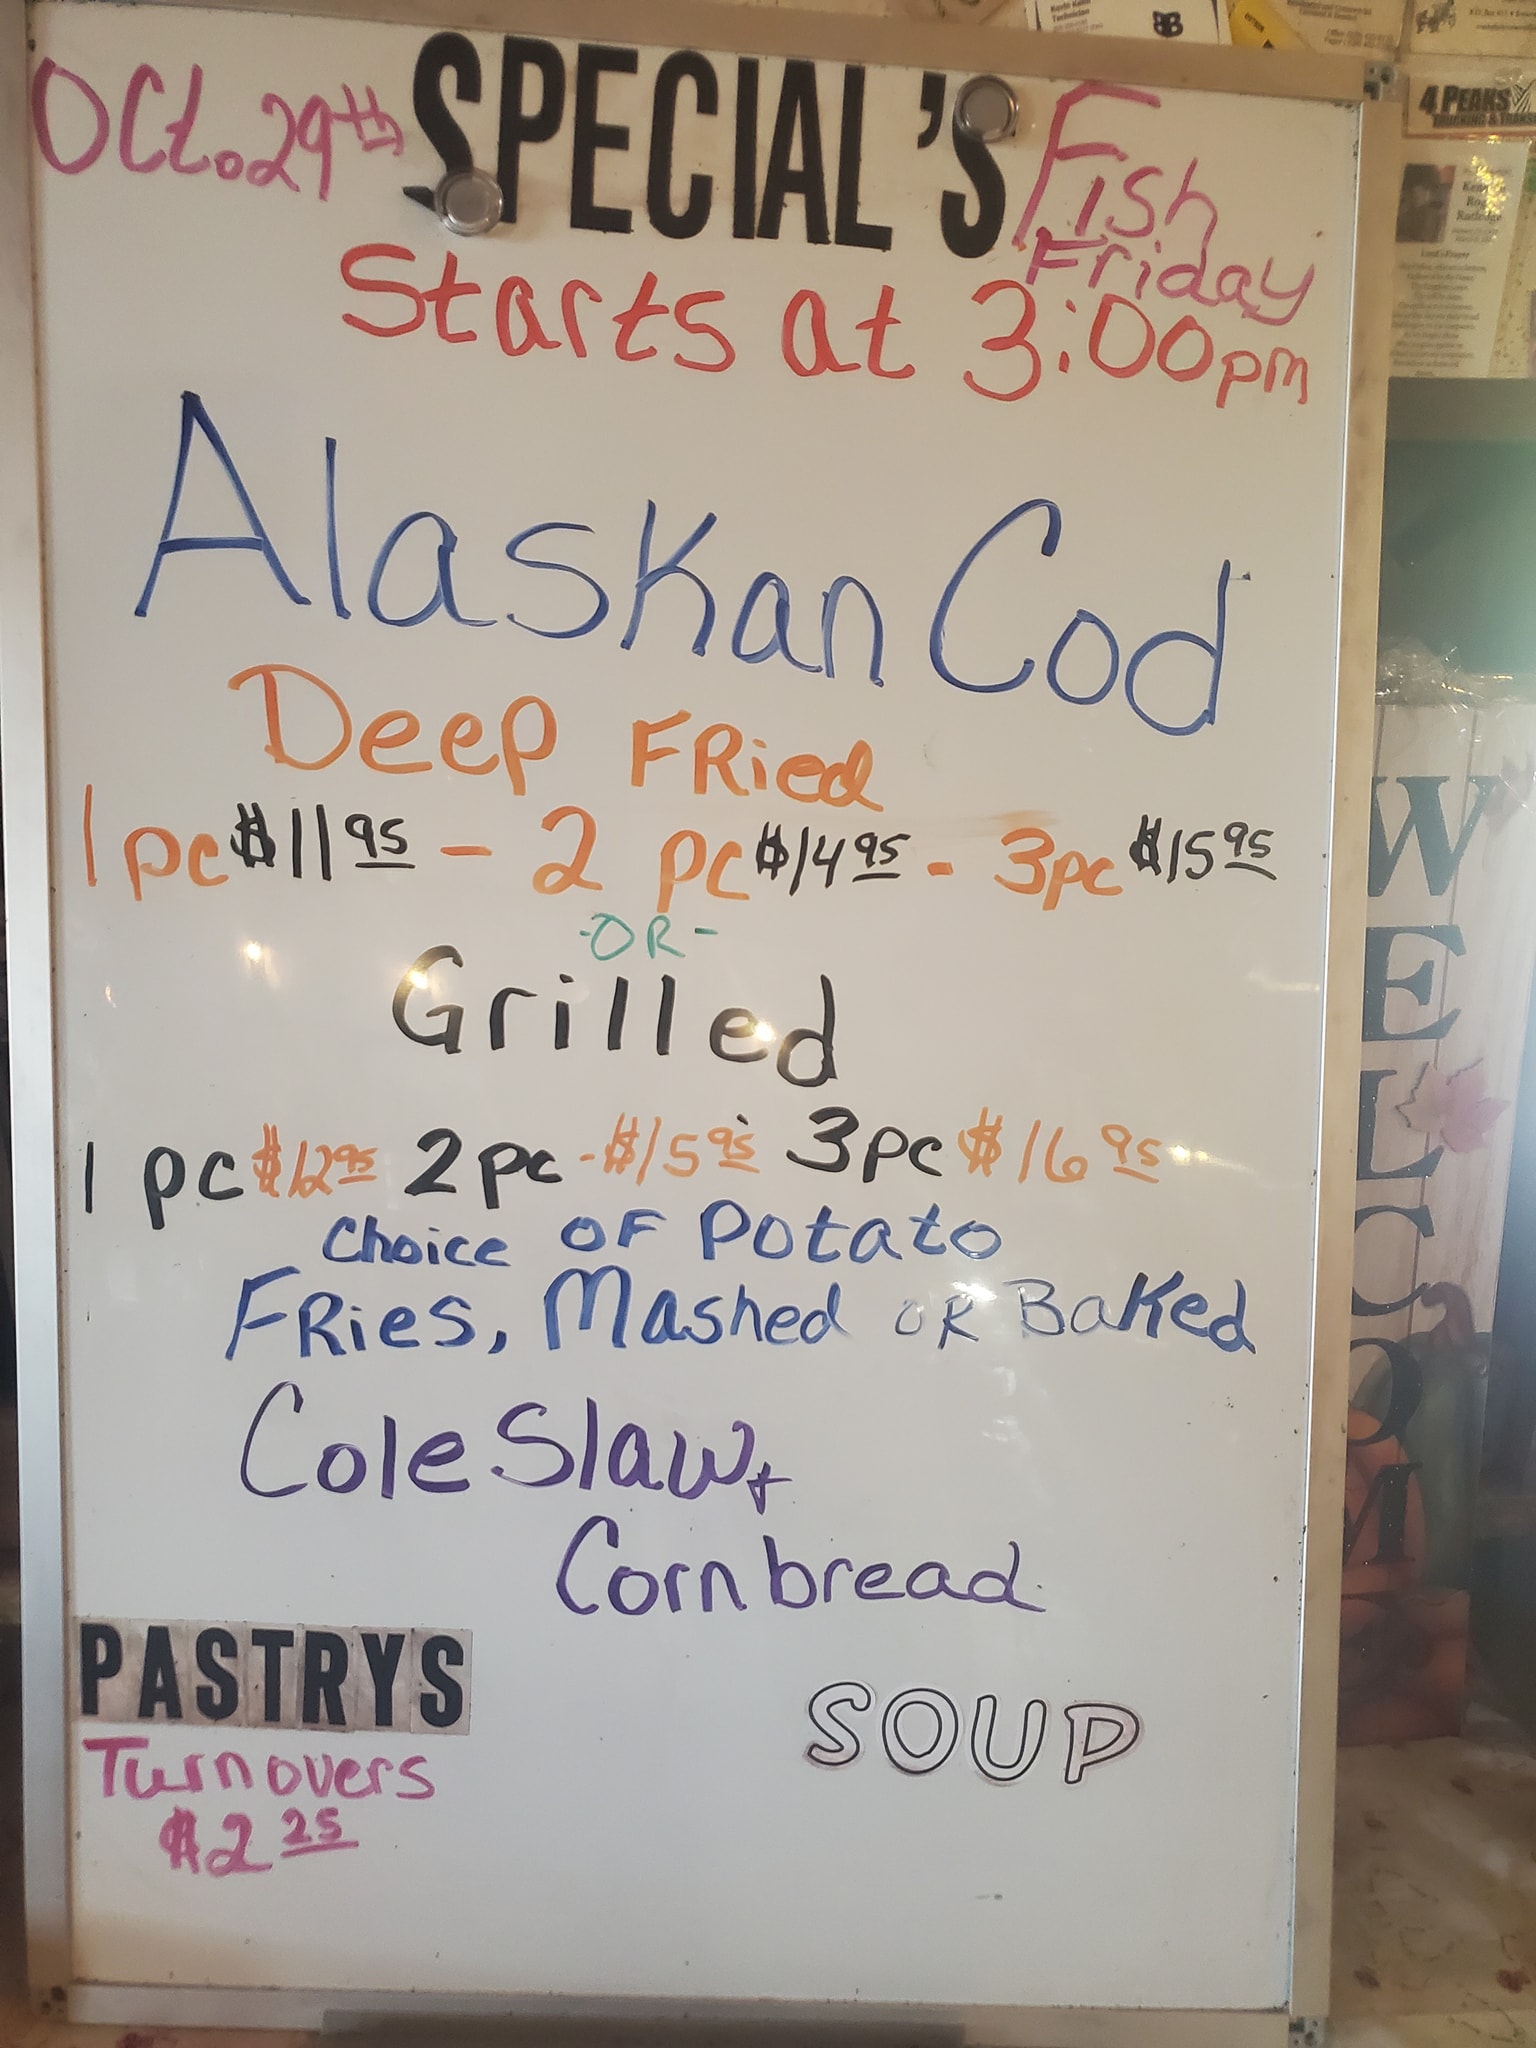 Oct. 29th SPECIAL'S Fish Friday
Starts at 3:00pm
Alaskan Cod
Deep FRied
1 pc $11 95 - 2 pc $14 95 - 3pc $15 95
-OR-
Grilled
1 pc $12 95 2 pc - $15 95 3pc $16 95
Choice OF Potato
FRies, Mashed OR Baked
Cole Slaw +
Cornbread
PASTRYS
Turnovers
$2 25
SOUP
WELCOM
4 PEAKS
TRUCKING & TRANS
Technician